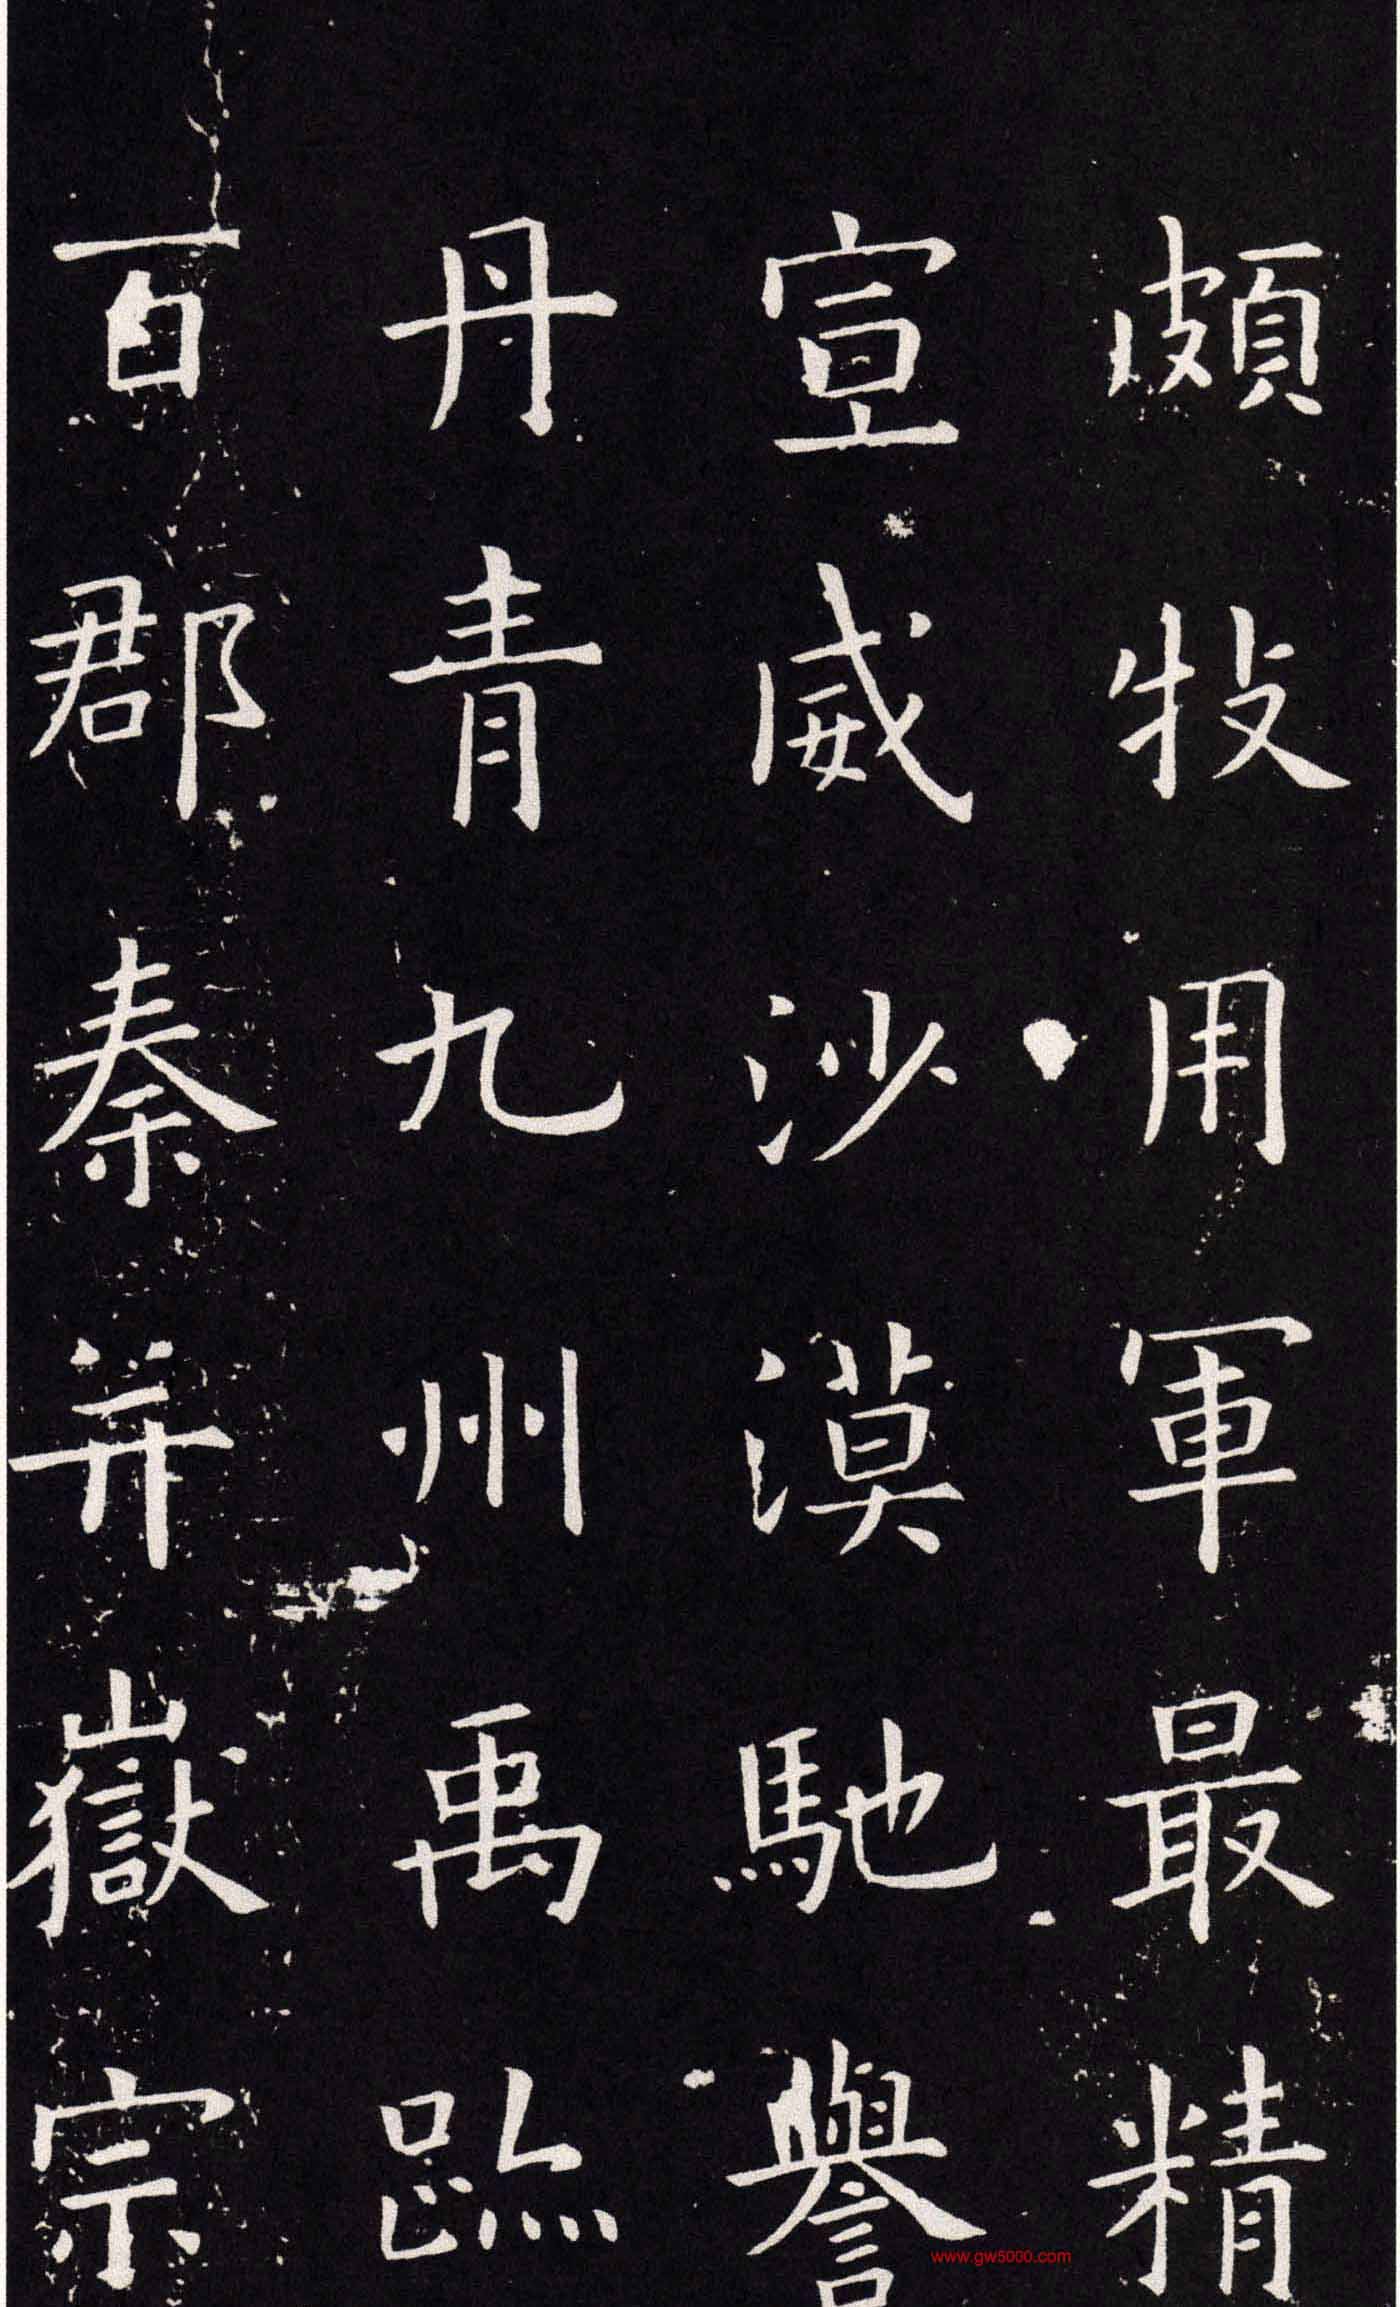 頗牧用軍最精
宣威沙漠馳譽
丹青九州禹跡
百郡秦并嶽宗
www.gw5000.com